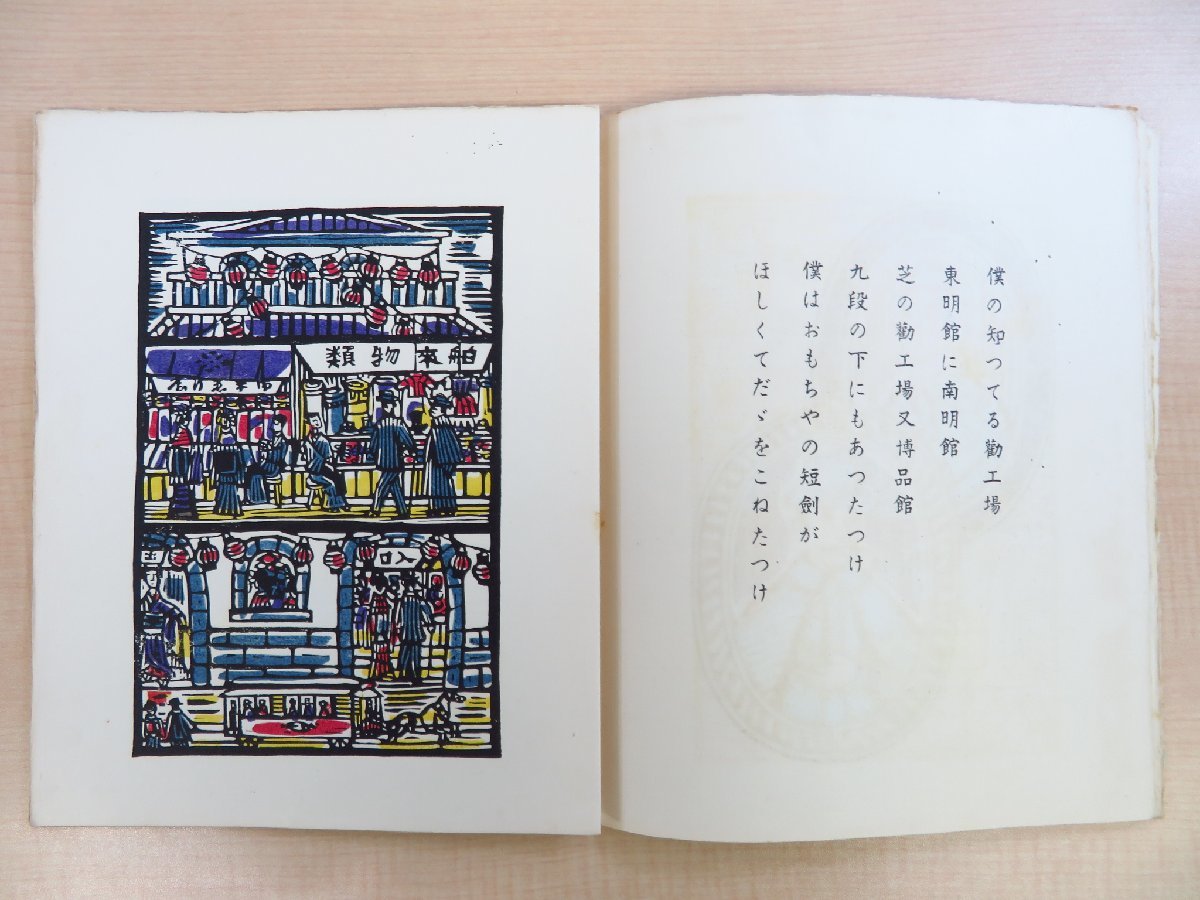 僕の知つてる勸工場
東明館に南明館
芝の勸工場又博品館
九段の下にもあつたつけ
僕はおもちやの短劍が
ほしくてだゞをこねたつけ
舶來物類
入口
出